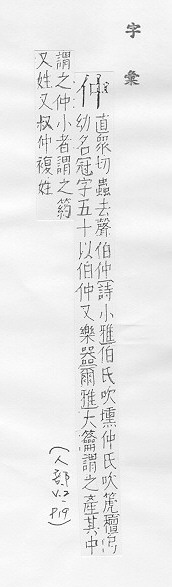 字彙
仲
直衆切蟲去聲伯仲[詩小雅]伯氏吹壎仲氏吹箎檀弓
幼名冠字五十以伯仲又樂器[爾雅]大籥謂之產其中
謂之仲小者謂之箹
又姓又叔仲複姓
(人部 V.2-P19)